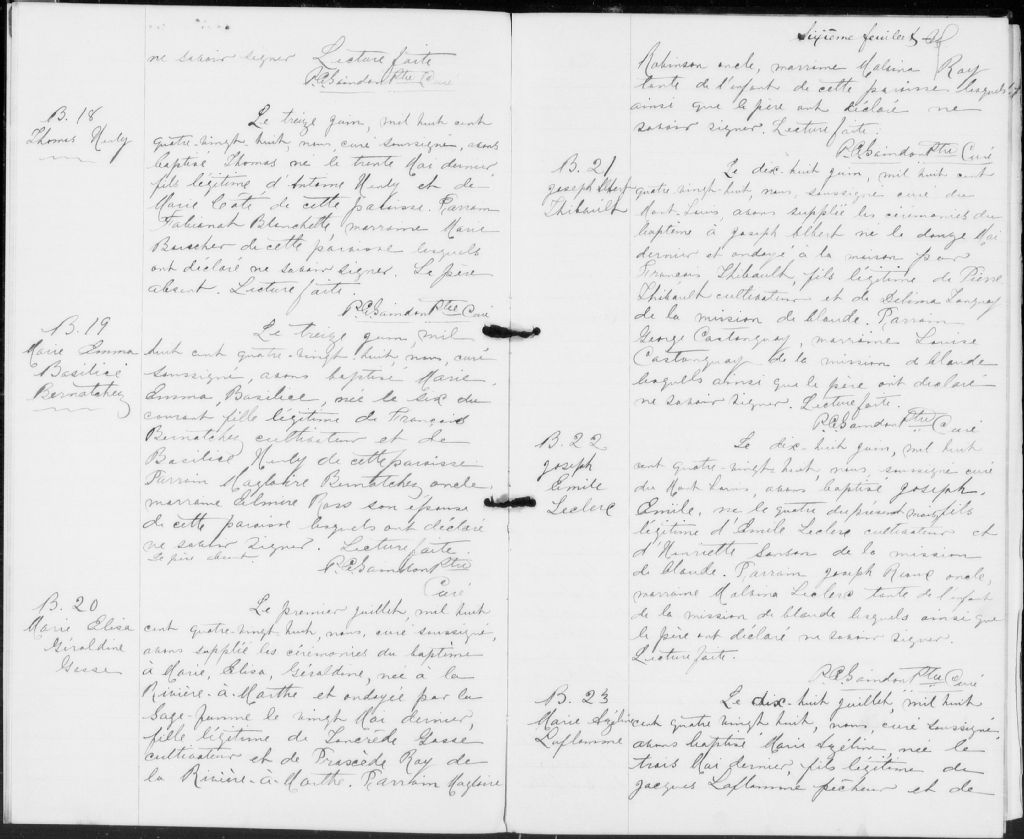 ne savoir signer Lecture faite
P.C. Saindon Ptre Curé
B. 18
Thomas Henly
Le treize juin, mil huit cent
quatre-vingt huit, nous, curé soussigné, avons
baptisé Thomas né le trente Mai dernier,
fils légitime d'Antoine Henly et de
Marie Côté de cette paroisse. Parrain
Blanchette, marraine Marie
Boucher de cette paroisse lesquels
ont déclaré ne savoir signer. Le père
absent. Lecture faite.
P.C. Saindon Ptre Curé
B. 19
Marie Emma
Basilice
Bernatchez
Le treize juin, mil
huit cent quatre-vingt huit, nous, curé
soussigné, avons baptisé Marie,
Emma, Basilice, née le six du
courant fille légitime de François
Bernatchez cultivateur et de
Basilice Henly de cette paroisse
Parrain Magloire Bernatchez, oncle,
marraine Elmire Ross son épouse
de cette paroisse lesquels ont déclaré
ne savoir signer. Lecture faite.
Le père absent
P.C. Saindon Ptre
Curé
B. 20
Marie Elisa
Géraldine
Gasse
Le premier juillet, mil huit
cent quatre-vingt huit, nous, curé soussigné,
avons supplié les cérémonies du baptème
à Marie, Elisa, Géraldine, née à la
Rivière-à-Marthe et ondoyée par la
Sage-femme le vingt Mai dernier,
fille légitime de Tancrède Gasse
cultivateur et de Praxcède Roy de
la Rivière-à-Marthe. Parrain Magloire
Sixième feuillet
Robinson oncle, marraine Malvina Roy
tante de l'enfant de cette paroisse lesquels
ainsi que le père ont déclaré ne
savoir signer. Lecture faite.
P.C. Saindon Ptre Curé
B. 21
Joseph Albert
Thibault
Le dix-huit juin, mil huit cent
quatre-vingt-huit, nous, soussigné curé du
Mont-Louis, avons supplié les cérémonies du
baptème à Joseph Albert né le douze Mai
dernier et ondoyé à la maison par
François Thibault, fils légitime de Pierre
Thibault cultivateur et de Delima Tanguay
de la mission de blaude. Parrain
George Castonguay, marraine Louise
Castonguay de la mission d blaude
lesquels ainsi que le père ont déclaré
ne savoir signer. Lecture faite.
P.C. Saindon Ptre Curé
B. 22
Joseph
Emile
Leclerc
Le dix-huit juin, mil huit
cent quatre-vingt huit, nous, soussigné curé
du Mont Louis, avons baptisé Joseph,
Emile, né le quatre du présent mois, fils
légitime d'Emile Leclerc cultivateur et
d'Henriette Sanson de la mission
de blaude. Parrain Joseph Rioux oncle,
marraine Malvina Leclerc tante de l'enfant
de la mission de blaude lesquels ainsi que
le père ont déclaré ne savoir signer.
Lecture faite.
P.C. Saindon Ptre Curé
B. 23
Marie Azéline
Laflamme
Le dix-huit juillet, mil huit
cent quatre vingt huit, nous, curé soussigné,
avons baptisé Marie Azéline, née le
trois Mai dernier, fils légitime de
Jacques Laflamme pêcheur et de